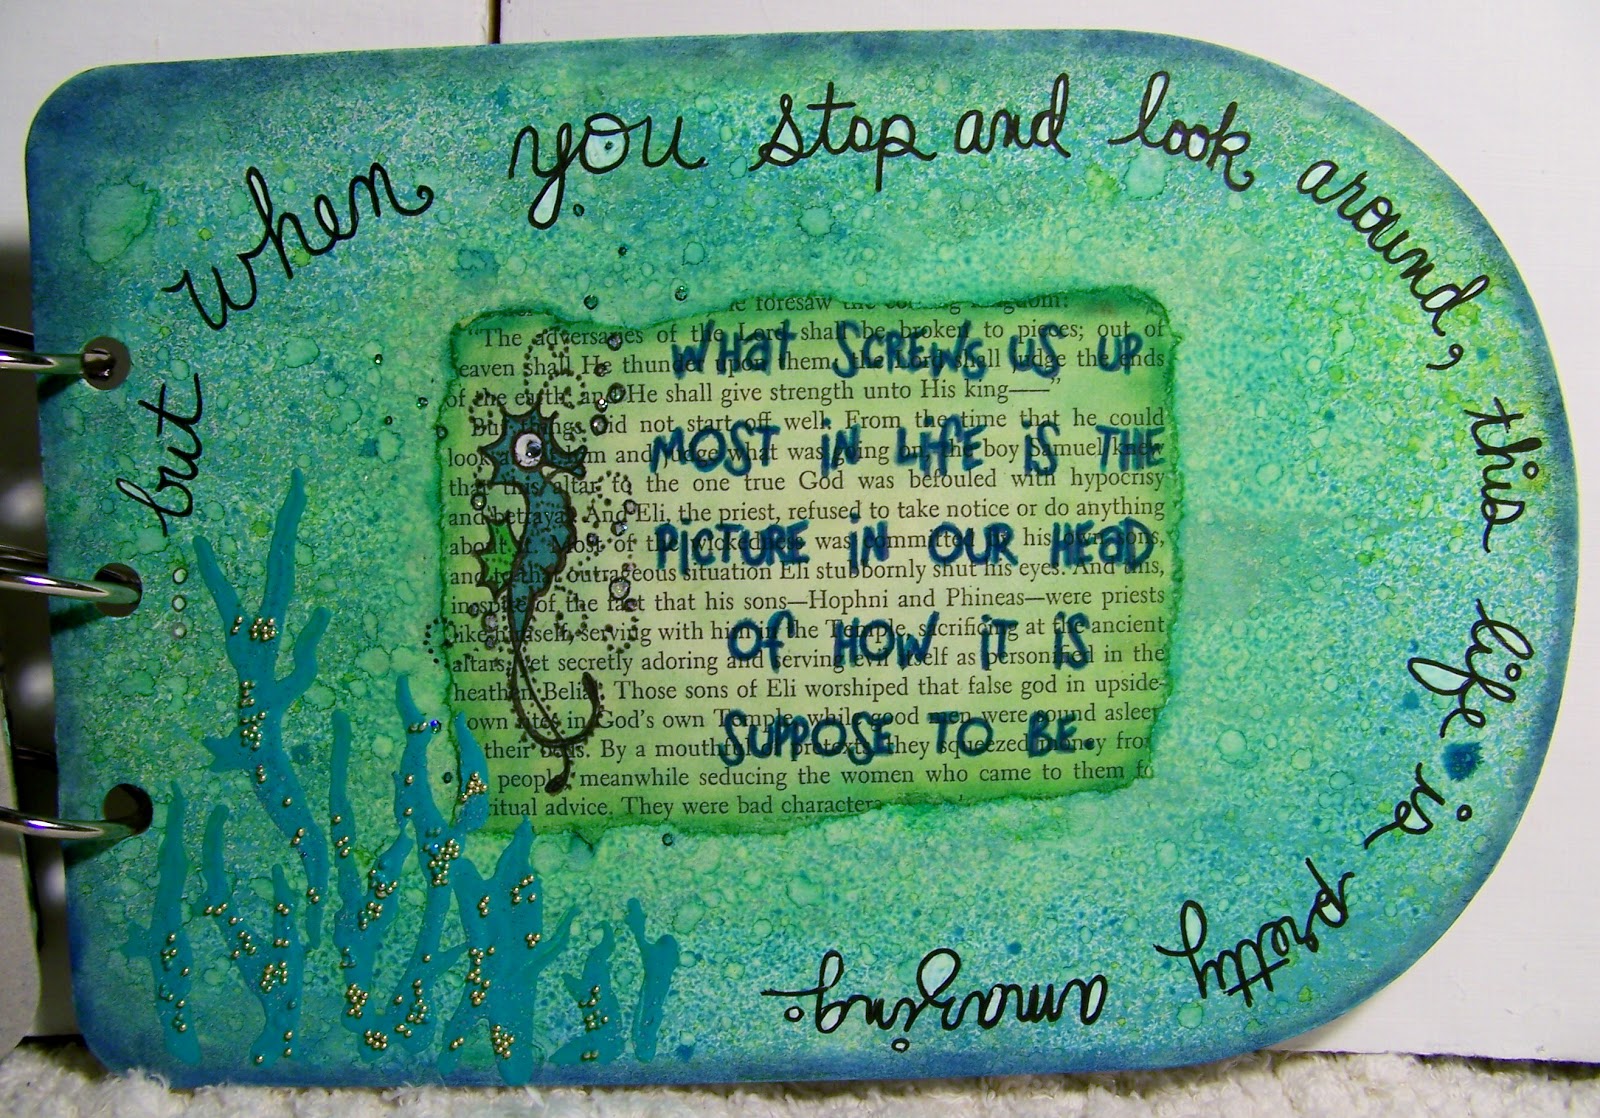 but when you stop and look around, this life is pretty amazing.
WHAT SCREWS US UP
MOST IN LIFE IS THE
PICTURE IN OUR HEAD
OF HOW IT IS
SUPPOSE TO BE.
foresaw the coming kingdom:
"The adversaries of the Lord shall be broken to pieces; out of
eaven shall He thunder upon them: the Lord shall judge the ends
of the earth; and He shall give strength unto His king——"
But things did not start off well. From the time that he could
look at him and judge what was going on, the boy Samuel knew
that this altar to the one true God was befouled with hypocrisy
and betrayal. And Eli, the priest, refused to take notice or do anything
about it. Most of the wickedness was committed by his own sons,
and to that outrageous situation Eli stubbornly shut his eyes. And this,
in spite of the fact that his sons—Hophni and Phineas—were priests
like himself, serving with him in the Temple, sacrificing at the ancient
altars, yet secretly adoring and serving evil itself as personified in the
heathen Belial. Those sons of Eli worshiped that false god in upside-
own rites in God's own Temple, while good men were sound asleep
their beds. By a mouthful of pretexts they squeezed money from
people, meanwhile seducing the women who came to them fo
ritual advice. They were bad characters